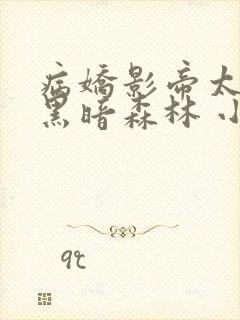 病嬌影帝太
黑暗森林 小
qc